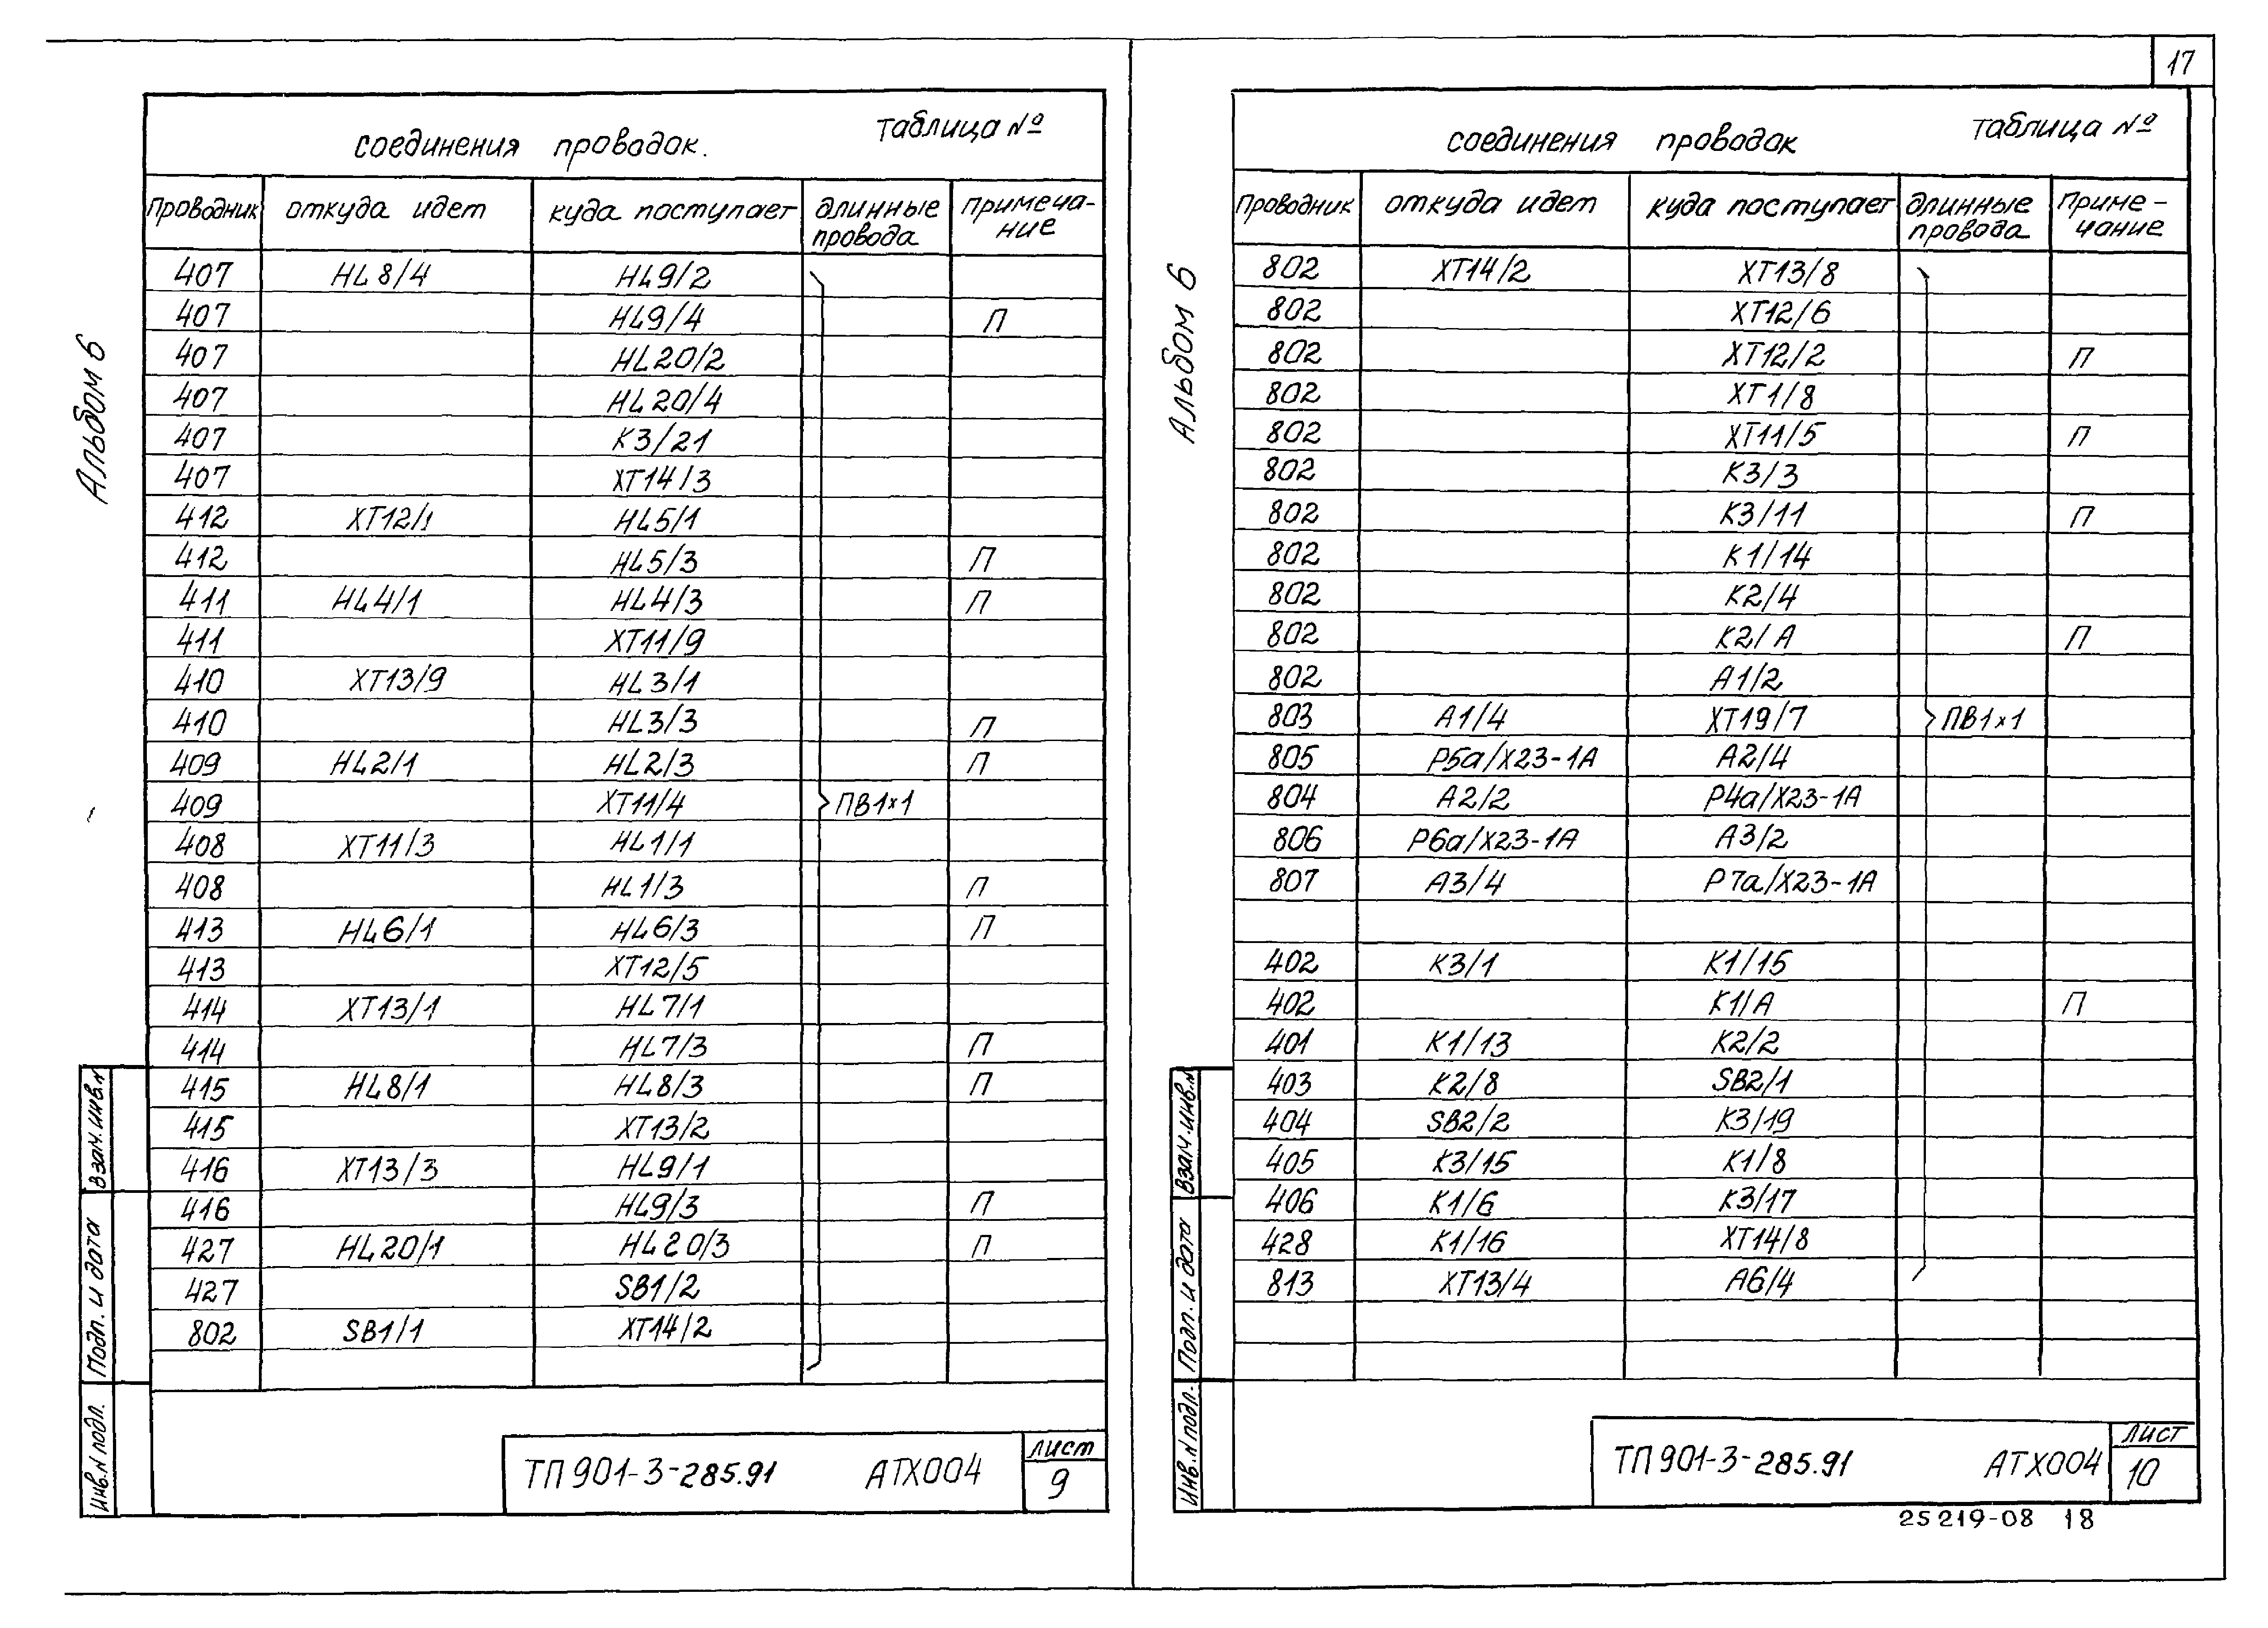 17
Альбом 6
соединения проводок. Таблица №
Проводник откуда идет куда поступает длинные провода Примеча-ние
407 HL8/4 HL9/2
407 HL9/4 П
407 HL20/2
407 HL20/4
407 К3/21
407 XT14/3
412 XT12/1 HL5/1
412 HL5/3 П
411 HL4/1 HL4/3 П
411 XT11/9
410 XT13/9 HL3/1
410 HL3/3 П
409 HL2/1 HL2/3 П
409 XT11/4 ПВ1×1
408 XT11/3 HL1/1
408 HL1/3 П
413 HL6/1 HL6/3 П
413 XT12/5
414 XT13/1 HL7/1
414 HL7/3 П
415 HL8/1 HL8/3 П
415 XT13/2
416 XT13/3 HL9/1
416 HL9/3 П
427 HL20/1 HL20/3 П
427 SB1/2
802 SB1/1 XT14/2
Взам.инв.N
Подп. и дата
Инв.N подл.
ТП 901-3-285.91 АТХ004
лист
9
Альбом 6
соединения проводок Таблица №
Проводник откуда идет куда поступает длинные провода Приме-чание
802 XT14/2 XT13/8
802 XT12/6
802 XT12/2 П
802 XT1/8
802 XT11/5 П
802 К3/3
802 К3/11 П
802 К1/14
802 К2/4
802 К2/А П
802 А1/2
803 А1/4 XT19/7 ПВ1×1
805 Р5а/Х23-1А А2/4
804 А2/2 Р4а/Х23-1А
806 Р6а/Х23-1А А3/2
807 А3/4 Р7а/Х23-1А
402 К3/1 К1/15
402 К1/А П
401 К1/13 К2/2
403 К2/8 SB2/1
404 SB2/2 К3/19
405 К3/15 К1/8
406 К1/6 К3/17
428 К1/16 XT14/8
813 XT13/4 А6/4
Взам.инв.N
Подп. и дата
Инв.N подл.
ТП 901-3-285.91 АТХ004
лист
10
25219-08 18